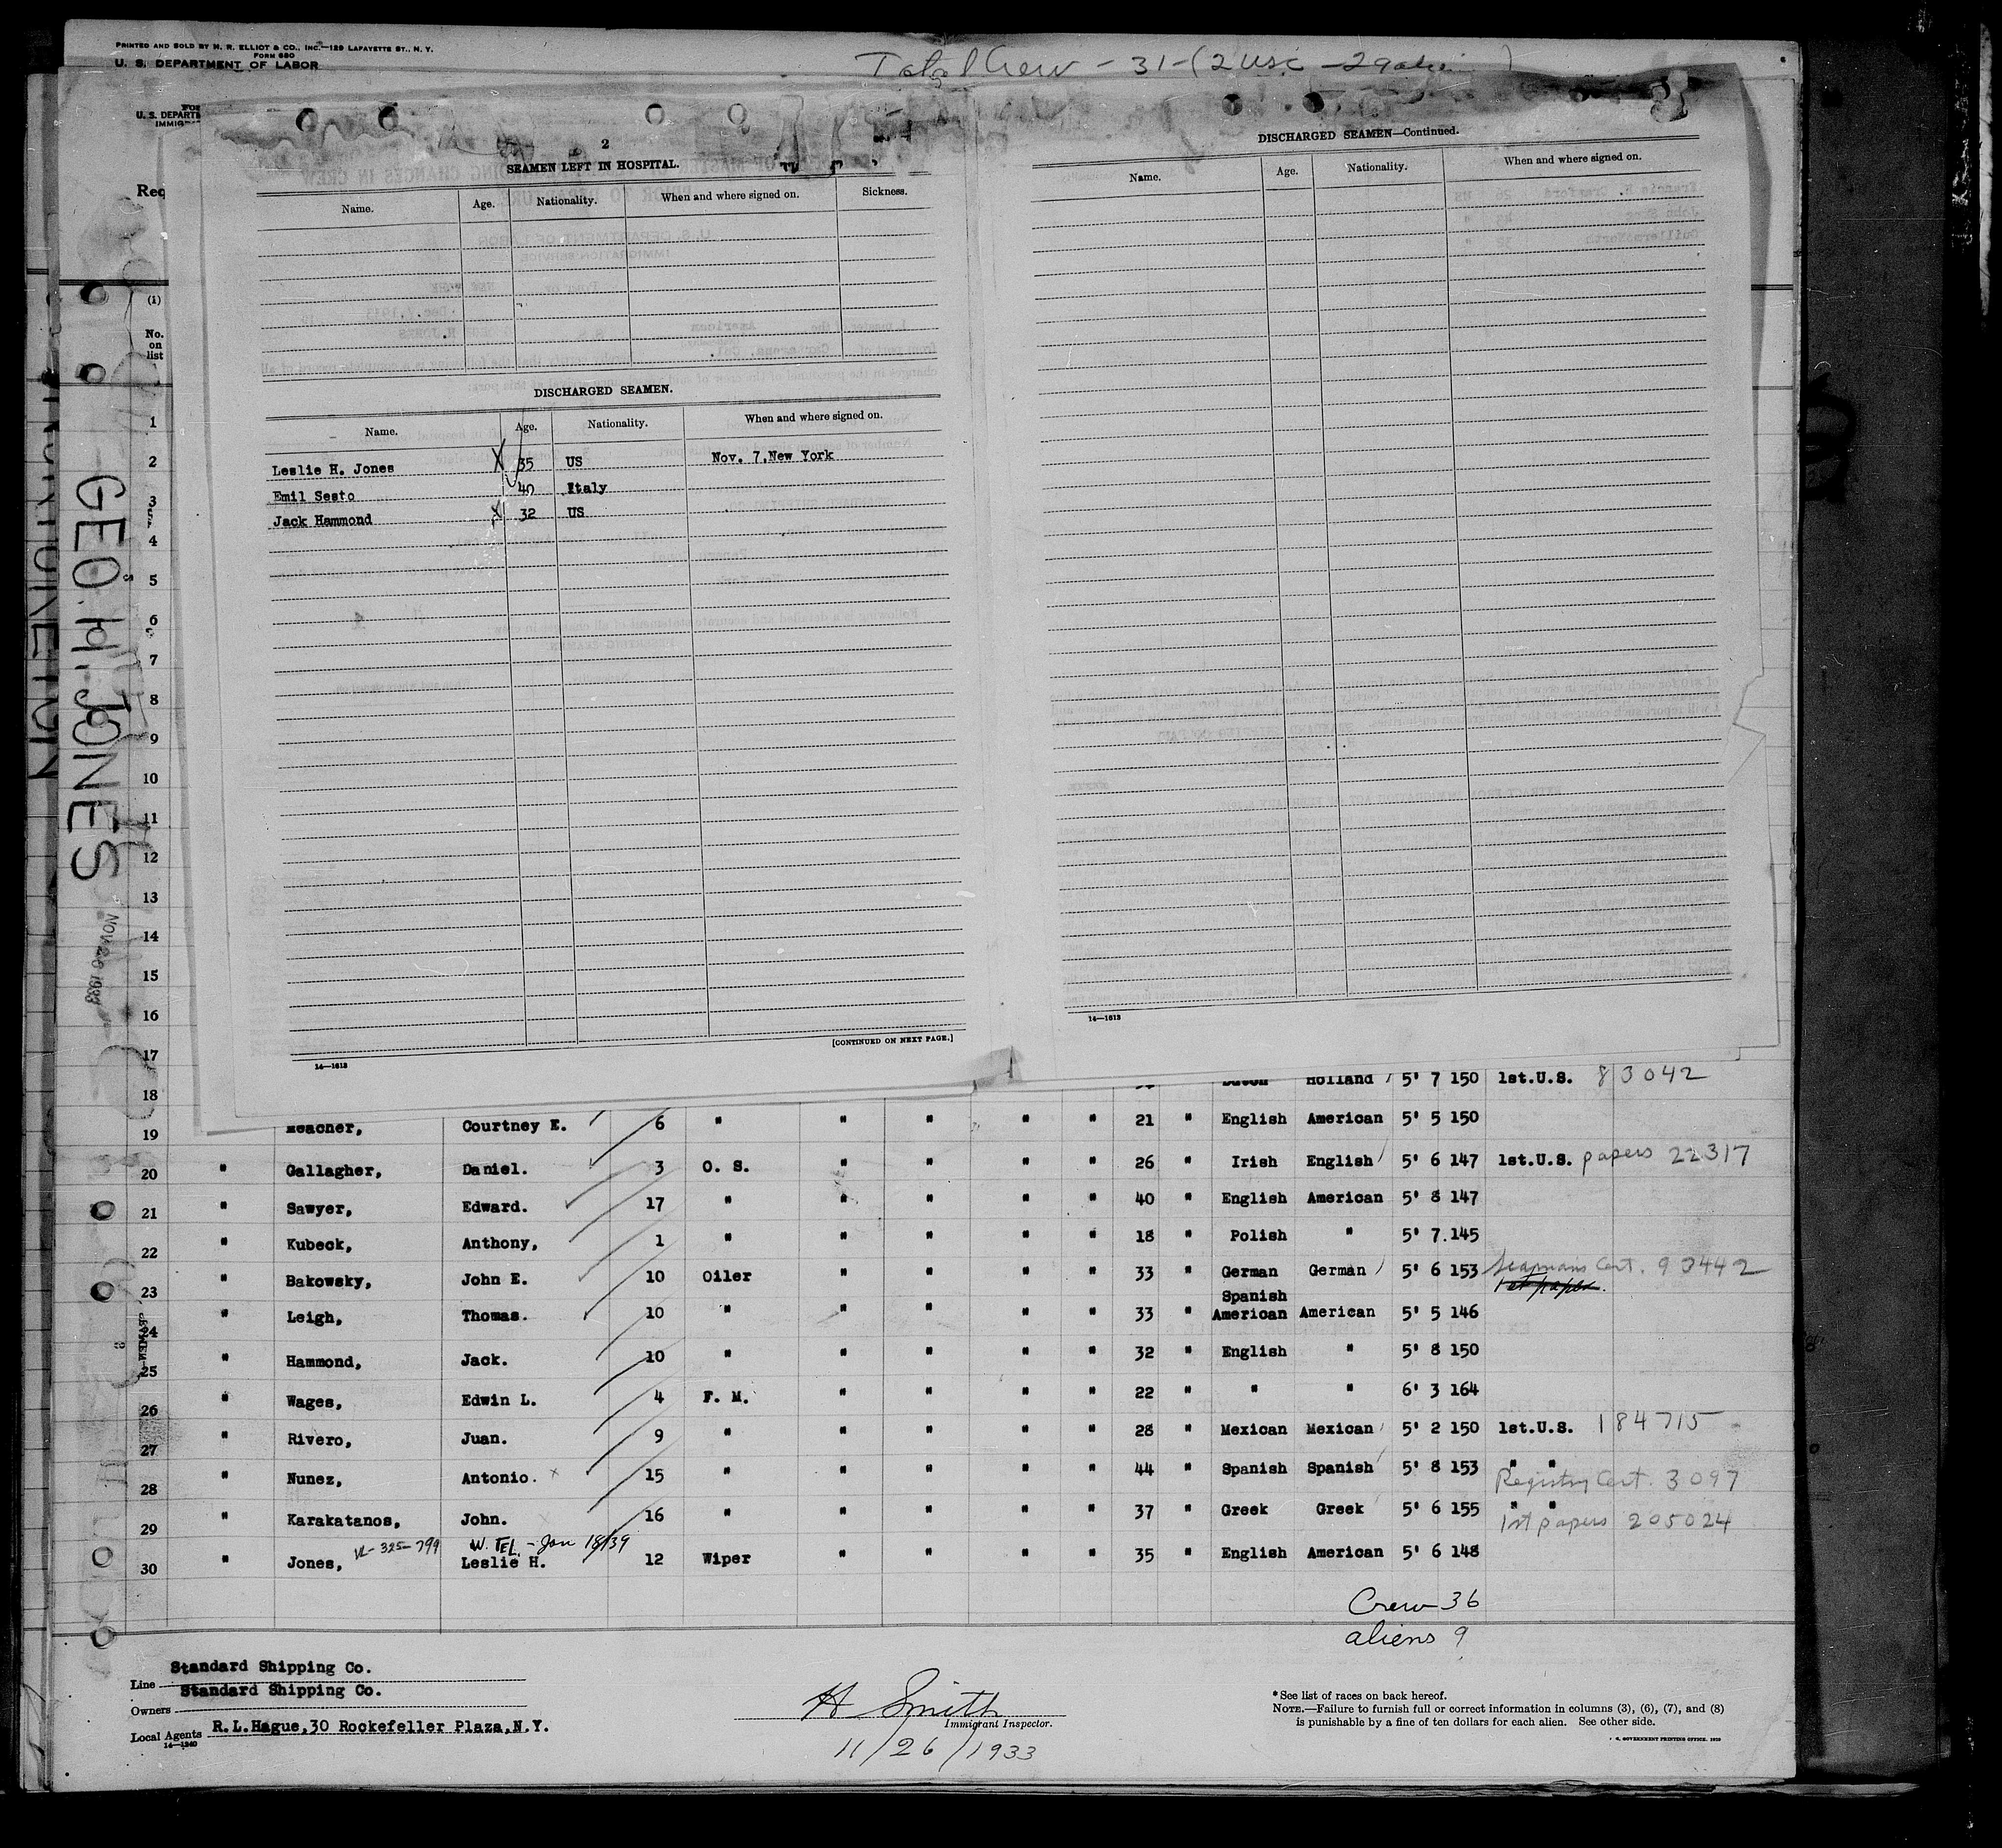 PRINTED AND SOLD BY M. R. ELLIOT & CO., INC.—129 LAFAYETTE ST., N. Y.
FORM 680
U. S. DEPARTMENT OF LABOR
Total Crew - 31 - (2 USC
U. S. DEPART
IMMIG
Req
GEO. H. JONES
NOV 26 1933
(1)
No. on list
2
SEAMEN LEFT IN HOSPITAL.
Name. Age. Nationality. When and where signed on. Sickness.
DISCHARGED SEAMEN.
Name. Age. Nationality. When and where signed on.
Leslie H. Jones X 35 US Nov. 7.New York
Emil Sesto 40 Italy
Jack Hammond X 32 US
[CONTINUED ON NEXT PAGE.]
14—1613
DISCHARGED SEAMEN—Continued.
Name. Age. Nationality. When and where signed on.
14—1613
1
2
3
4
5
6
7
8
9
10
11
12
13
14
15
16
17
18 Holland 5' 7 150 1st.U.S. 83042
19 Courtney E. 6 " " " " " 21 " English American 5' 5 150
20 " Gallagher, Daniel. 3 O. S. " " " " 26 " Irish English 5' 6 147 1st.U.S. papers 22317
21 " Sawyer, Edward. 17 " " " " " 40 " English American 5' 8 147
22 " Kubeck, Anthony, 1 " " " " " 18 " Polish " 5' 7.145
23 " Bakowsky, John E. 10 Oiler " " " " 33 " German German 5' 6 153 Seaman's Cert. 90442
1st paper.
24 " Leigh, Thomas. 10 " " " " " 33 " Spanish American American 5' 5 146
25 " Hammond, Jack. 10 " " " " " 32 " English " 5' 8 150
26 " Wages, Edwin L. 4 F. M. " " " " 22 " " " 6' 3 164
27 " Rivero, Juan. 9 " " " " " 28 " Mexican Mexican 5' 2 150 1st.U.S. 184715
28 " Nunez, Antonio. x 15 " " " " " 44 " Spanish Spanish 5' 8 153 " "
Registry Cert. 3097
29 " Karakatanos, John. 16 " " " " " 37 " Greek Greek 5' 6 155 " "
1st papers 205024
VL-325-799 W. TEL. - Jan 18/39
30 " Jones, Leslie H. 12 Wiper " " " " 35 " English American 5' 6 148
Crew 36
aliens 9
Line Standard Shipping Co.
Owners Standard Shipping Co.
Local Agents R.L.Hague,30 Rockefeller Plaza,N.Y.
14—1240
H Smith
Immigrant Inspector.
11/26/1933
* See list of races on back hereof.
NOTE.—Failure to furnish full or correct information in columns (3), (6), (7), and (8)
is punishable by a fine of ten dollars for each alien. See other side.
GOVERNMENT PRINTING OFFICE.